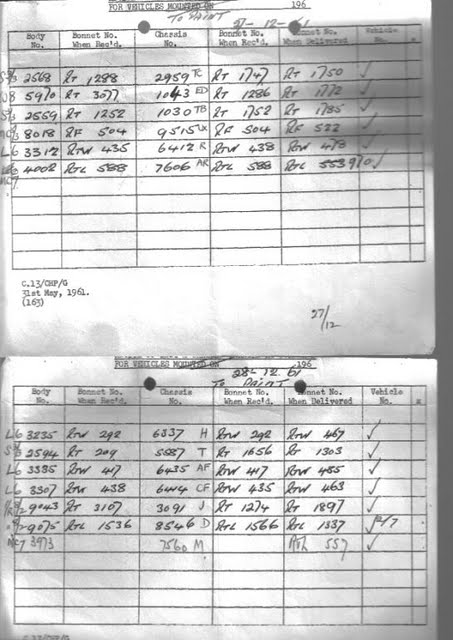 FOR VEHICLES MOUNTED ON 196
TO PAINT 27-12-61
Body No. Bonnet No. When Rec'd. Chassis No. Bonnet No. When Rec'd. Bonnet No. When Delivered Vehicle No.
2568 RT 1288 2959 R RT 1747 RT 1750 ✓
5970 RT 3077 1043 ED RT 1286 RT 1772 ✓
2559 RT 1252 1030 TB RT 1752 RT 1785 ✓
8018 RF 504 9515 UX RF 504 RF 522 ✓
L6 3312 RTW 435 6412 R RTW 438 RTW 478 ✓
4002 RTL 588 7606 AR RTL 588 RTL 553 ✓
MC7
C.13/CHP/G
31st May, 1961.
(163)
27/12
FOR VEHICLES MOUNTED ON 196
TO PAINT 28-12-61
Body No. Bonnet No. When Rec'd. Chassis No. Bonnet No. When Rec'd. Bonnet No. When Delivered Vehicle No.
L6 3235 RTW 292 6337 H RTW 292 RTW 467 ✓
2594 RT 209 5587 T RT 1656 RT 1303 ✓
L6 3385 RTW 417 6435 AF RTW 417 RTW 485 ✓
L6 3307 RTW 438 6444 CF RTW 435 RTW 463 ✓
9043 RT 3107 3091 J RT 1274 RT 1897 ✓
9075 RTL 1536 8546 D RTL 1566 RTL 1337 ✓
MC7 3973 7560 M RTL 557 ✓
C.13/CHP/G